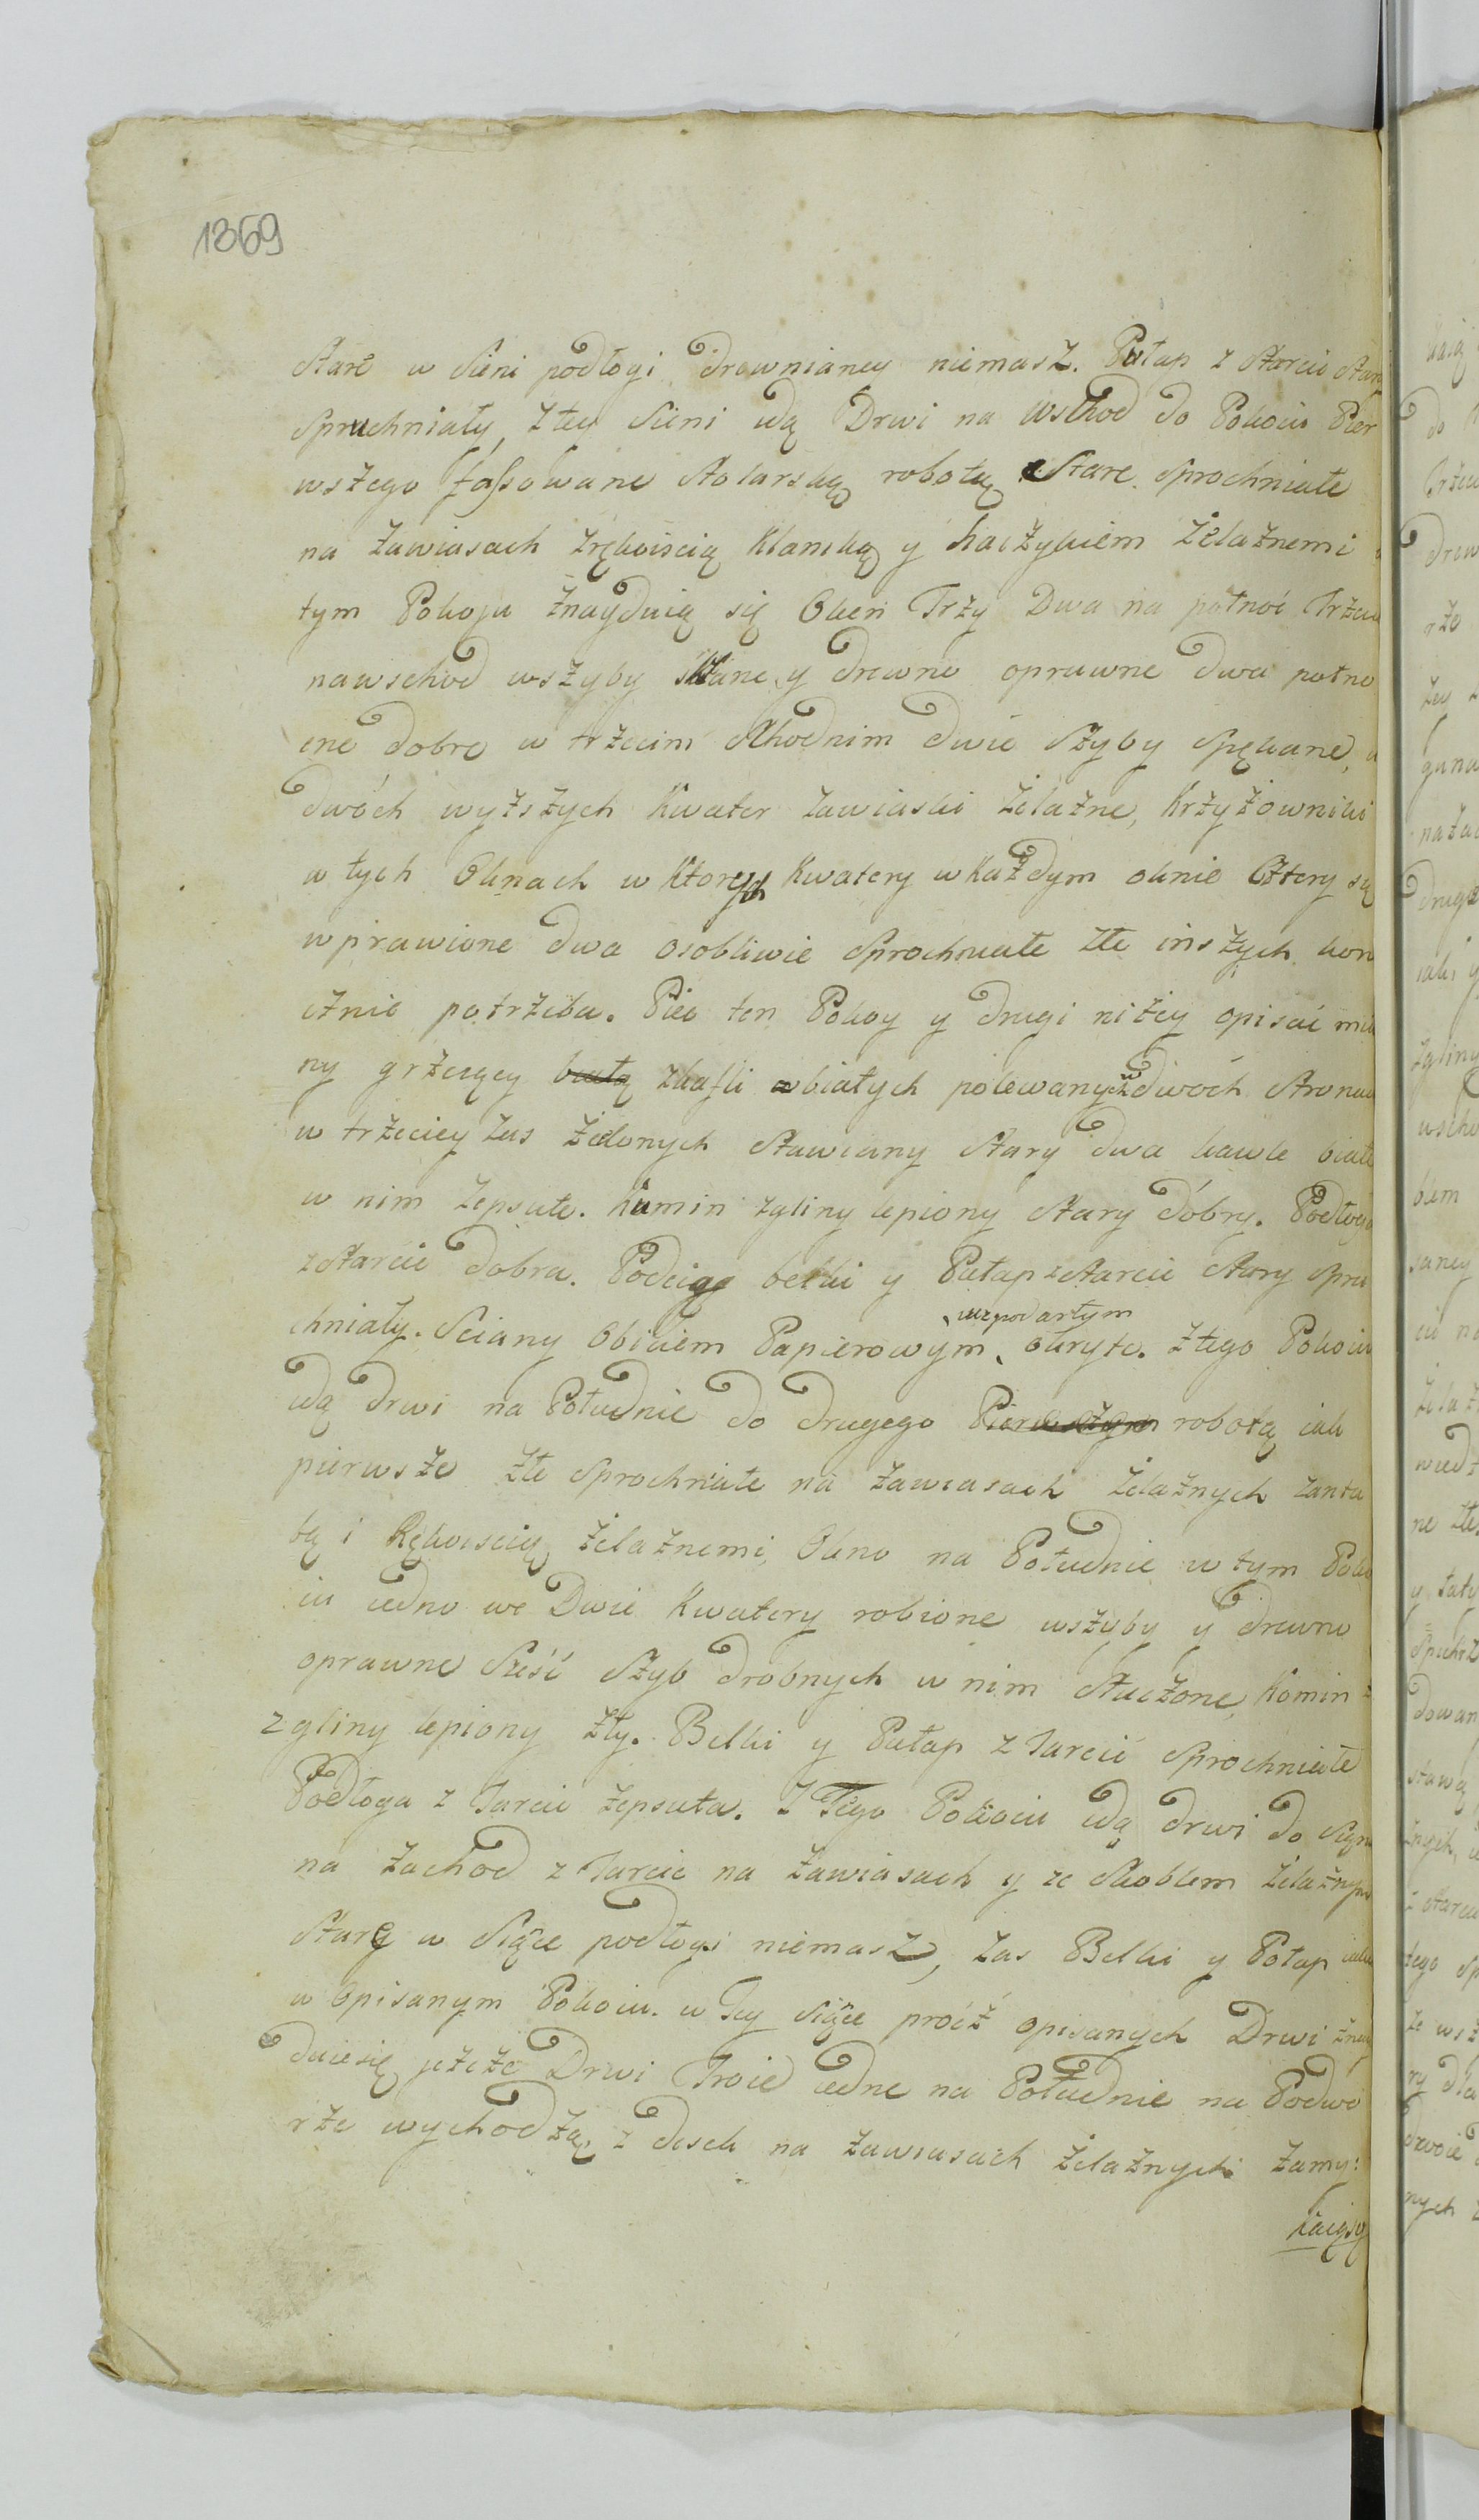 1369
Stare w Sieni podłogi drewnianey niemasz. Pułap z Starcic Stary
Spruchniały, Ztey Sieni idą Drwi na Wschod do Pokoiu Pier
wszego fassowane Stolarską robotą Stare Sprochniałe
na Zawiasach Zrękoiscią Klamką y haczykiem Żelaznemi
tym Pokoju Znayduią się Okien Trzy Dwa na połnoć Trzecie
nawschod wszyby szklane y drewno oprawne dwa połno
cne dobre w trzecim Schodnim dwie Szyby Spękane,
dwóch wyższych Kwater Zawiaski Żelazne, Krzyżowniki
w tych Oknach w Ktorych Kwatery wKażdym oknie Cztery są
wprawione dwa osobliwie Sprochniałe złe inszych kon
icznie potrzeba. Piec ten Pokoy y drugi niżey opisać mia
ny grzeiący białą zkafli białych polewanych w dwóch Stronach
w trzeciey Zas Zielonych Stawiany Stary dwa kawle białe
w nim Zepsute. Kumin zgliny lepiony Stary dobry. Podłoga
zStarcic dobra. Podciąg belki y Pułap zStarcic Stary Spru
chniały. Sciany Obiciem Papierowym, okryte. Ztego Pokoiu
uzpodartym
idą drwi na Południe do drugego Pierwszym robotą iak
pierwsze złe Sprochniałe na Zawiasach Żelaznych zanta
bą i Rękoiscią Żelaznemi, Okno na Południe w tym Poko
iu iedno we Dwie Kwatery robione wszyby y drewno
oprawne Sześć Szyb drobnych w nim Stuczone, Komin
zgliny lepiony zły. Belki y Pułap z Tarcic Sprochniałe
Podłoga z Tarcic Zepsuta. Z Tego Pokoiu idą drwi do Sięni
na Zachod z Tarcic na Zawiasach y ze Skoblem Żelaznym
Stare w Siące podłogi niemasz, Zas Belki y Połap iak
w Opisanym Pokoiu. w Tey Siące prócz opisanych Drwi znay
duiesię jeżcze Drwi Troie iedne na Południe na Podwó
rze wychodzą z desek na Zawiasach Żelaznych Zamy:
kaiący